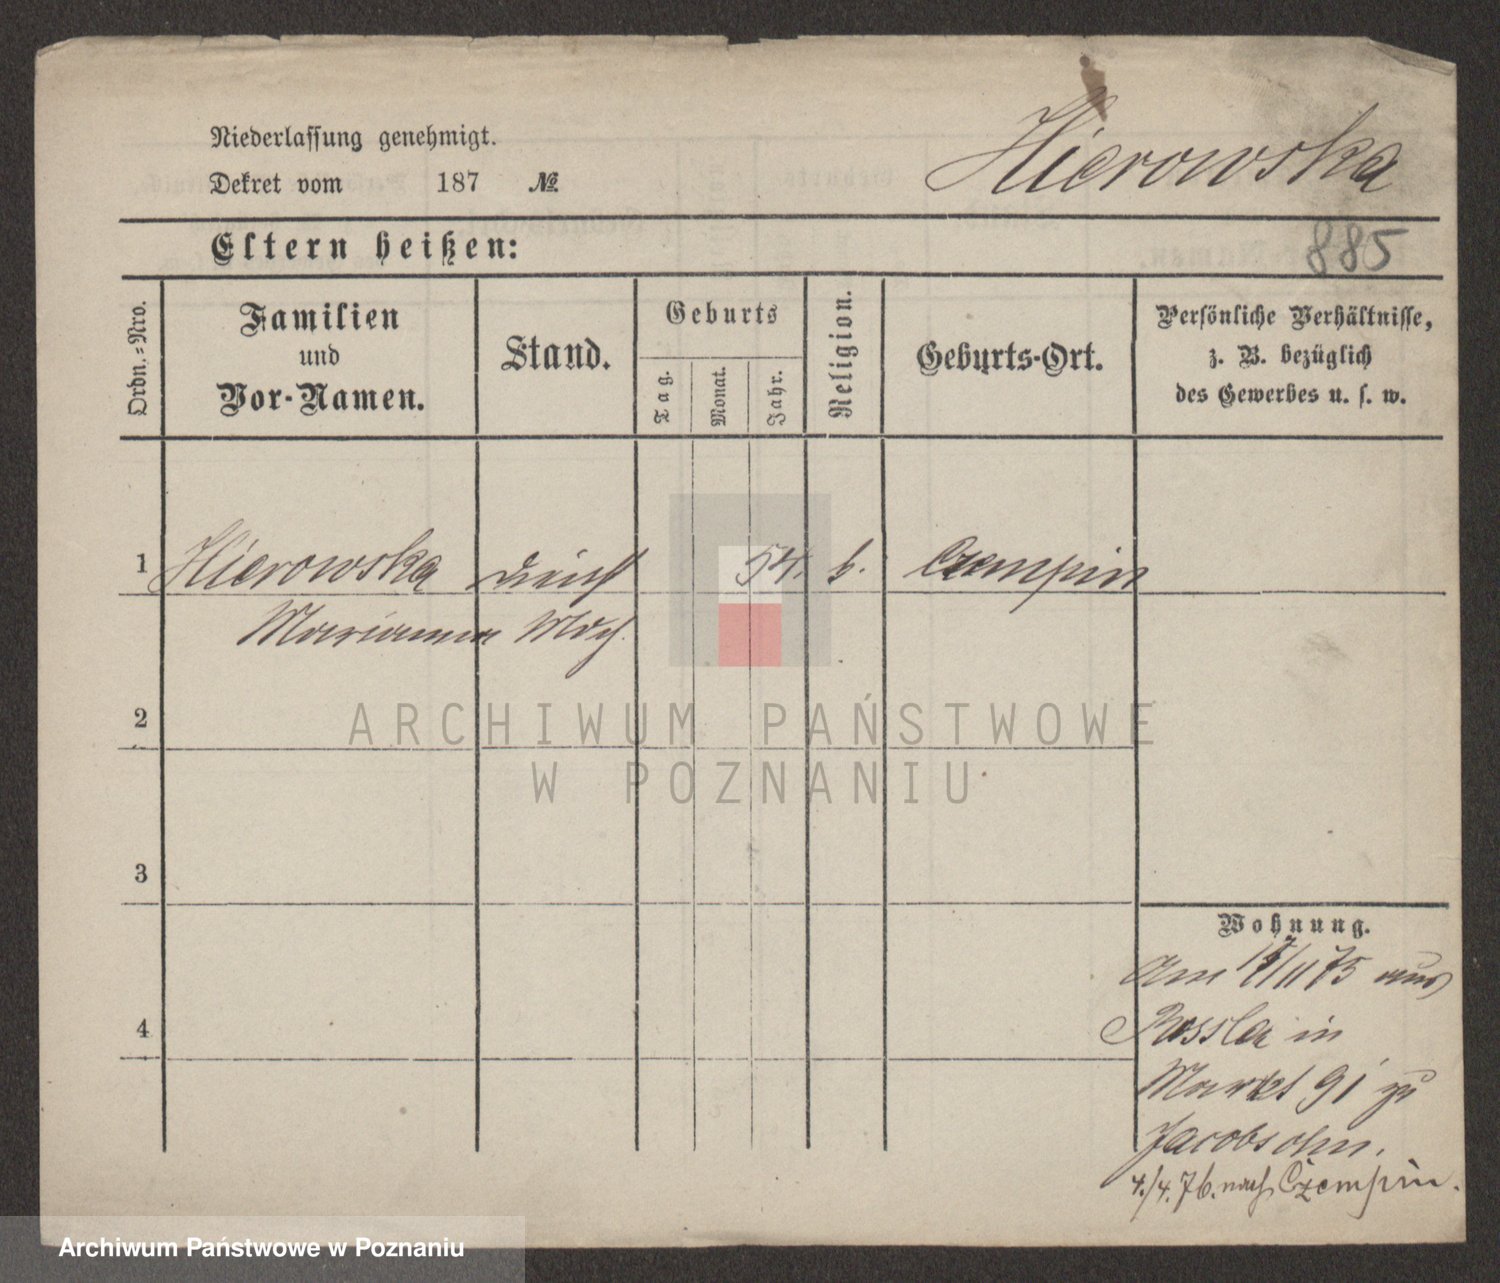 Niederlassung genehmigt.
Dekret vom 187 №
Hierowska
Eltern heißen:
885
Ordn.=Nro.
Familien
und
Vor-Namen.
Stand.
Geburts
Tag.
Monat.
Jahr.
Religion.
Geburts-Ort.
Persönliche Verhältnisse,
z. B. bezüglich
des Gewerbes u. s. w.
1 Hierowska 54. Czempin
Marianna
2
3
4
Wohnung.
am 17/11 75 aus
in
Markt 91 zu
Jacobsohn.
4./4. 76. nach Czempin.
ARCHIWUM PAŃSTWOWE
W POZNANIU
Archiwum Państwowe w Poznaniu